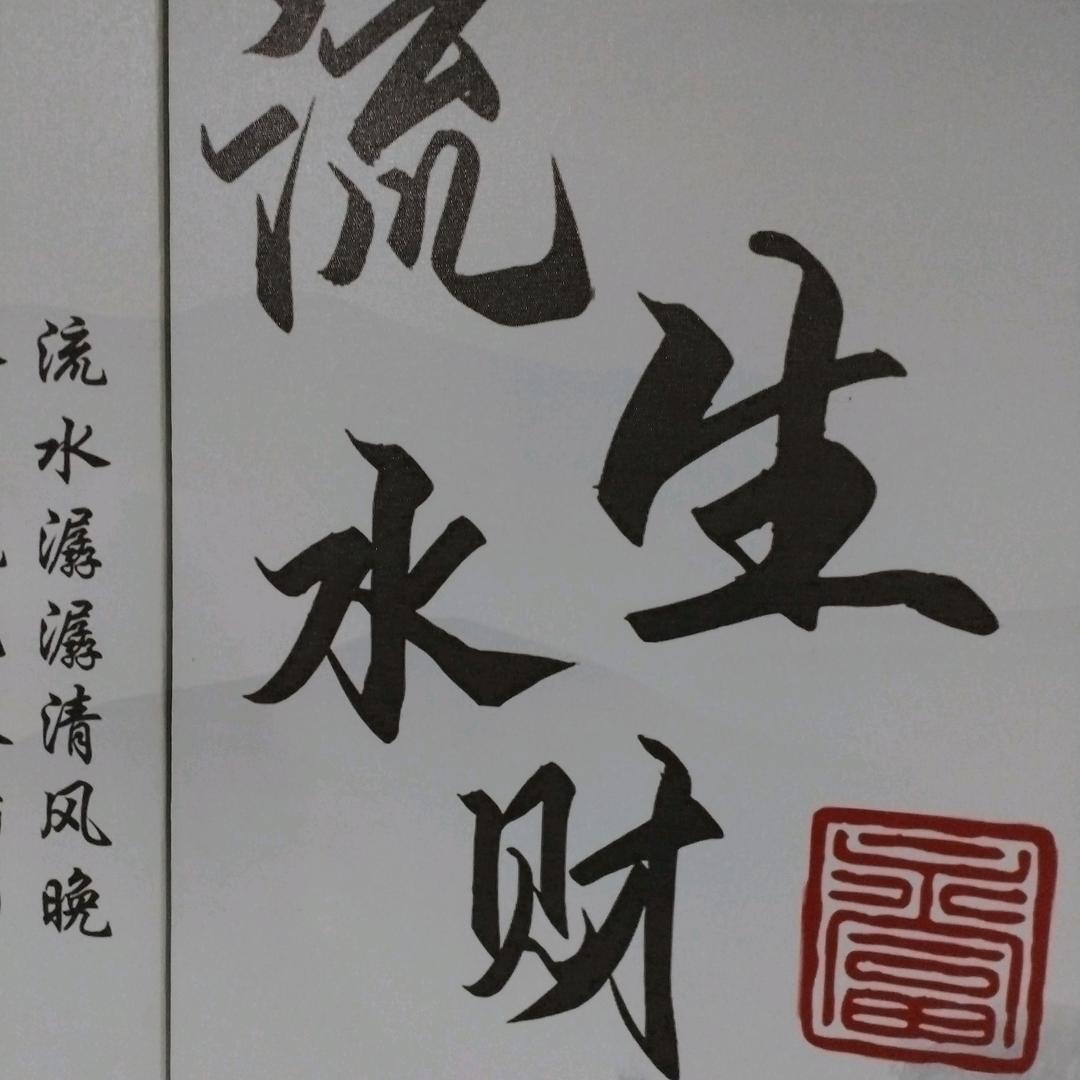 流水生财
流水潺潺清风晚